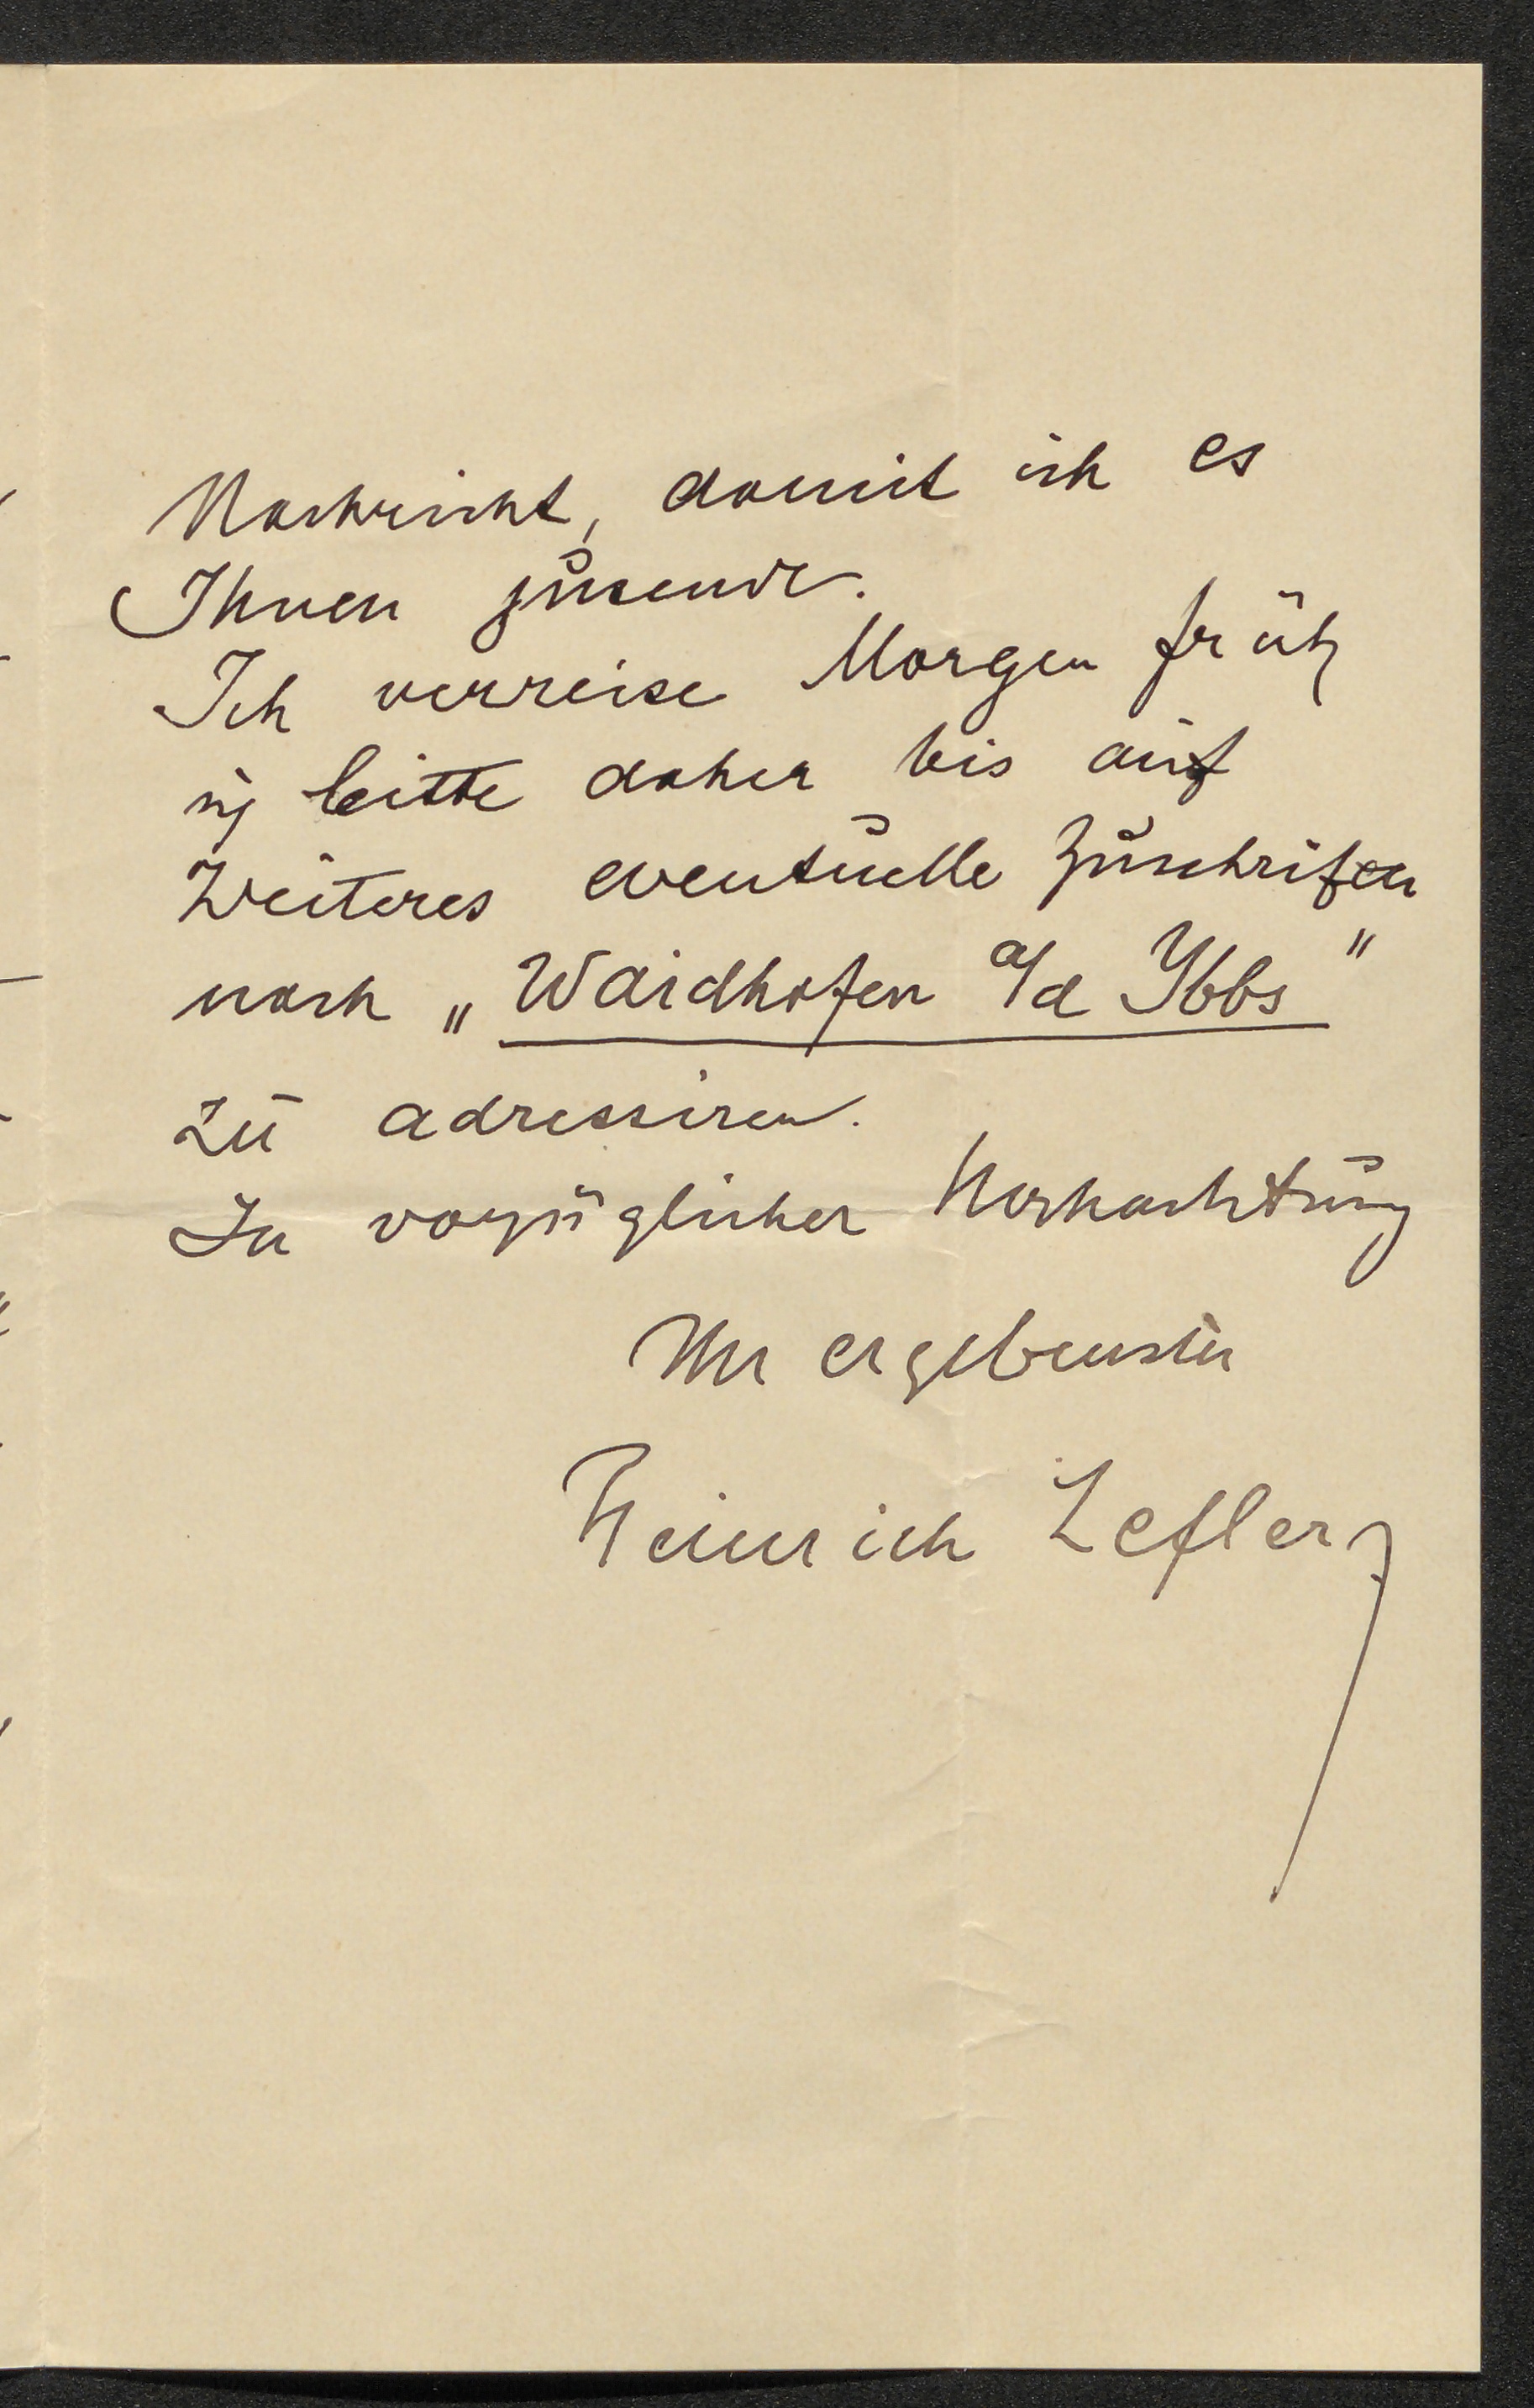 Nachricht, damit ich es
Ihnen zusende.
Ich verreise Morgen früh
u bitte daher bis auf
Weiteres eventuelle Zuschrifen
nach „Waidhofen a/d Ybbs"
zu adressiren.
In vorzüglicher Hochachtung
Ihr ergebenster
Heinrich Lefler